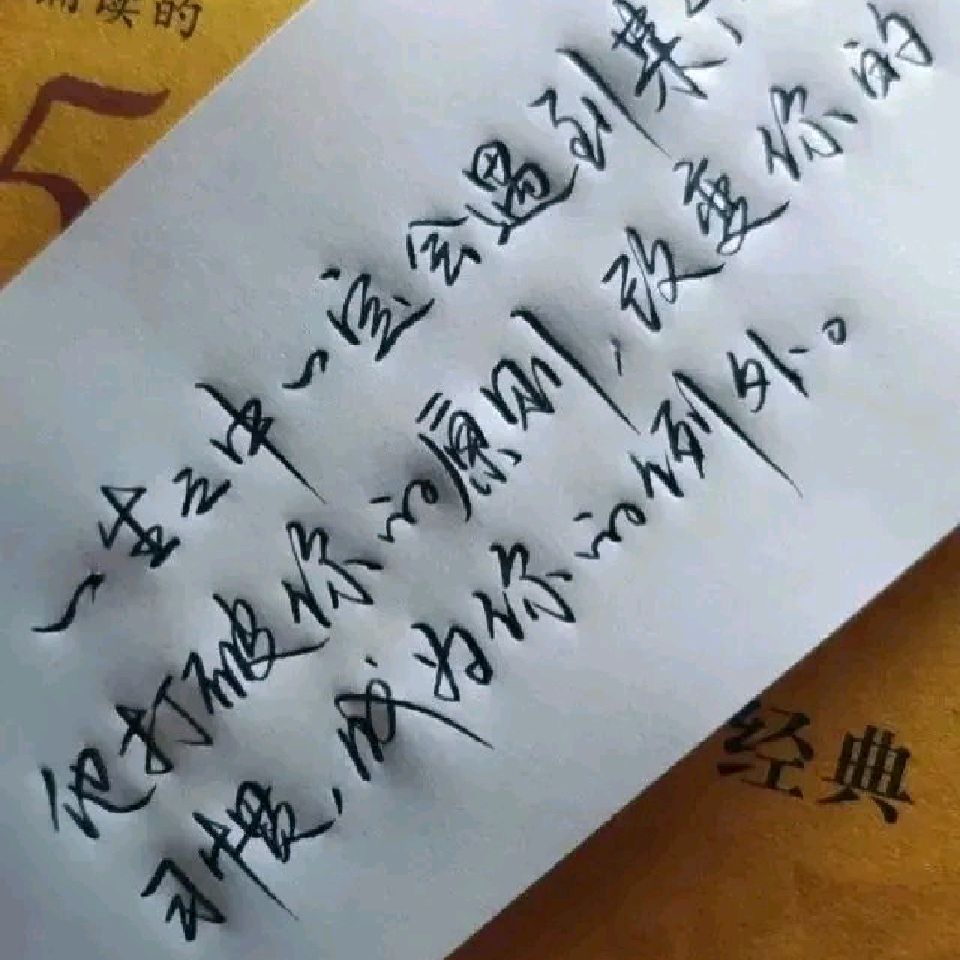 诵读的
5
一生之中一定会遇到某
他打破你的原则,改变你的
习惯,成为你的例外。
经典